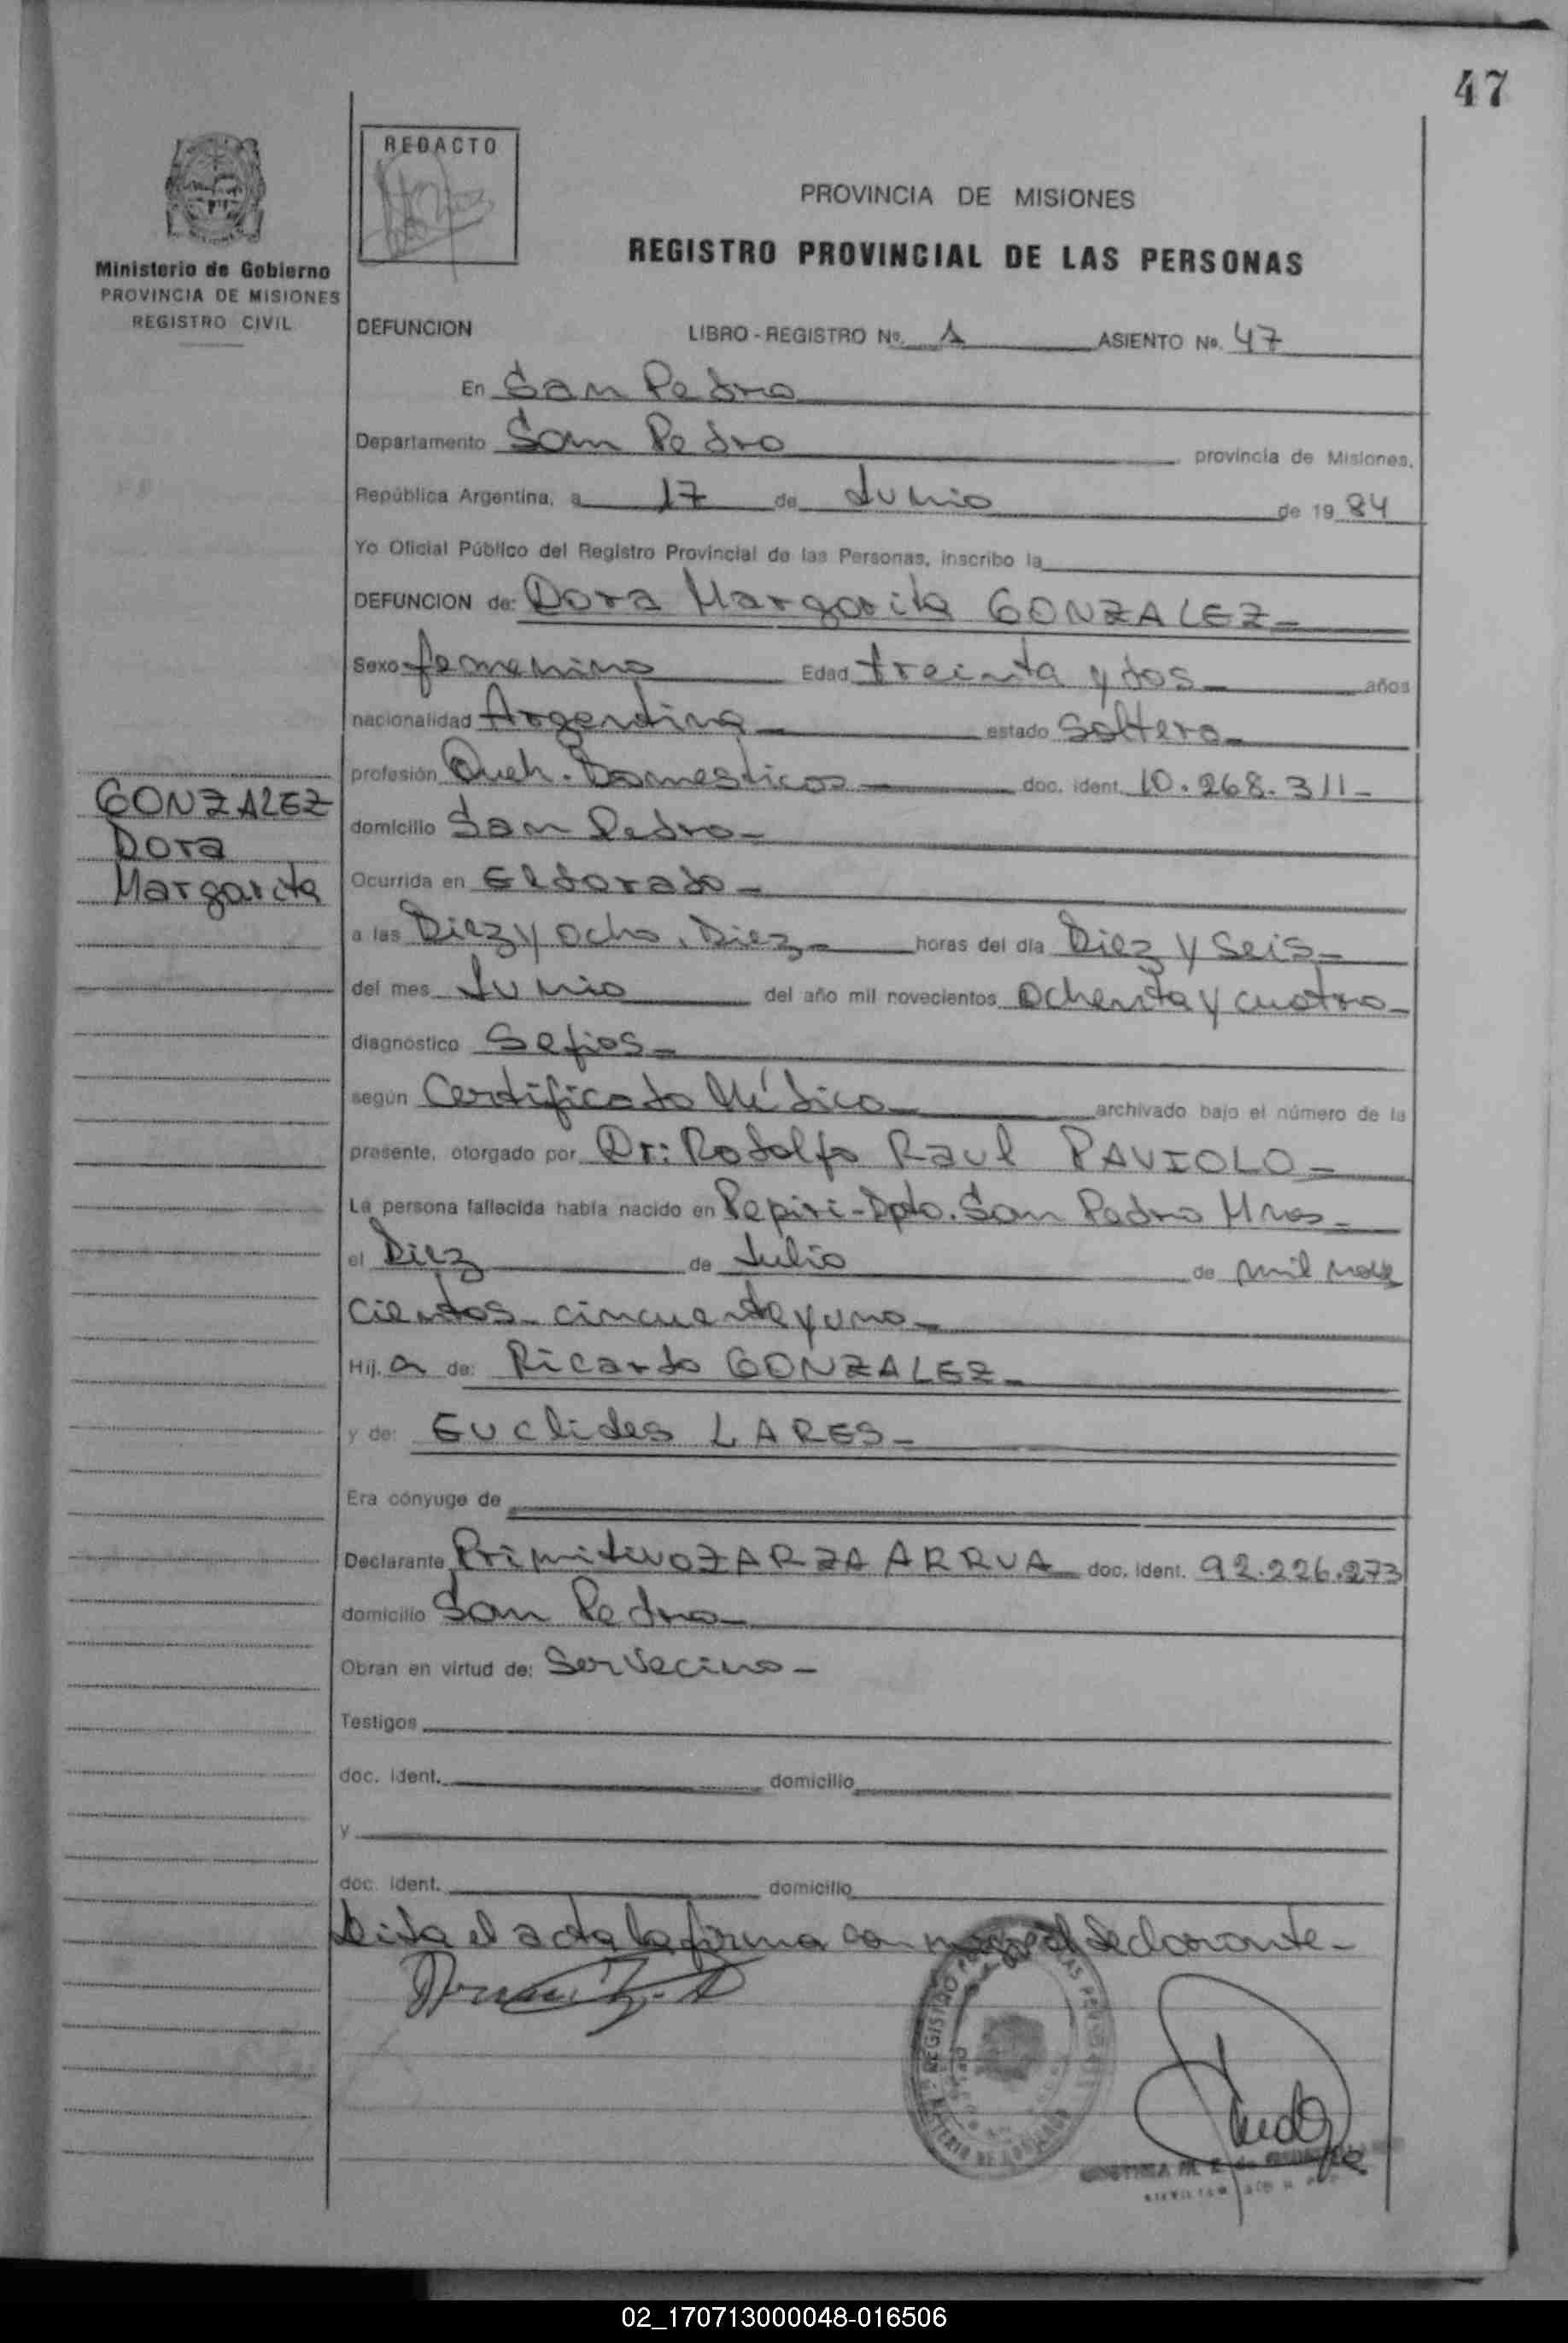 47
REDACTO
Ministerio de Gobierno
PROVINCIA DE MISIONES
REGISTRO CIVIL
PROVINCIA DE MISIONES
REGISTRO PROVINCIAL DE LAS PERSONAS
DEFUNCION LIBRO - REGISTRO Nº. 1 ASIENTO Nº. 47
En San Pedro
Departamento San Pedro provincia de Misiones,
República Argentina, a 17 de Junio de 19 84
Yo Oficial Público del Registro Provincial de las Personas, inscribo la
DEFUNCION de: Dora Margarita GONZALEZ-
Sexo femenino Edad treinta y dos- años
nacionalidad Argentina- estado Soltera-
profesión Queh. Domesticos doc. ident. 10.268.311-
domicilio San Pedro-
GONZALEZ
Dora
Margarita
Ocurrida en Eldorado-
a las Diez y ocho, Diez- horas del día Diez y Seis-
del mes Junio del año mil novecientos Ochenta y cuatro-
diagnóstico Sepios-
según Certificado Médico archivado bajo el número de la
presente, otorgado por Dr: Rodolfo Raul PAVIOLO-
La persona fallecida había nacido en Pepiri-Dpto. San Pedro Mnes-
el Diez de Julio de mil nove
cientos cincuenta y uno-
Hij. a de: Ricardo GONZALEZ-
y de: Euclides LARES-
Era cónyuge de
Declarante Primitivo ZARZA ARRUA doc. ident. 92.226.273
domicilio San Pedro-
Obran en virtud de: Ser Vecino-
Testigos
doc. ident. domicilio
y
doc. ident. domicilio
Leida el acta la firma con migo el declarante-
02_170713000048-016506